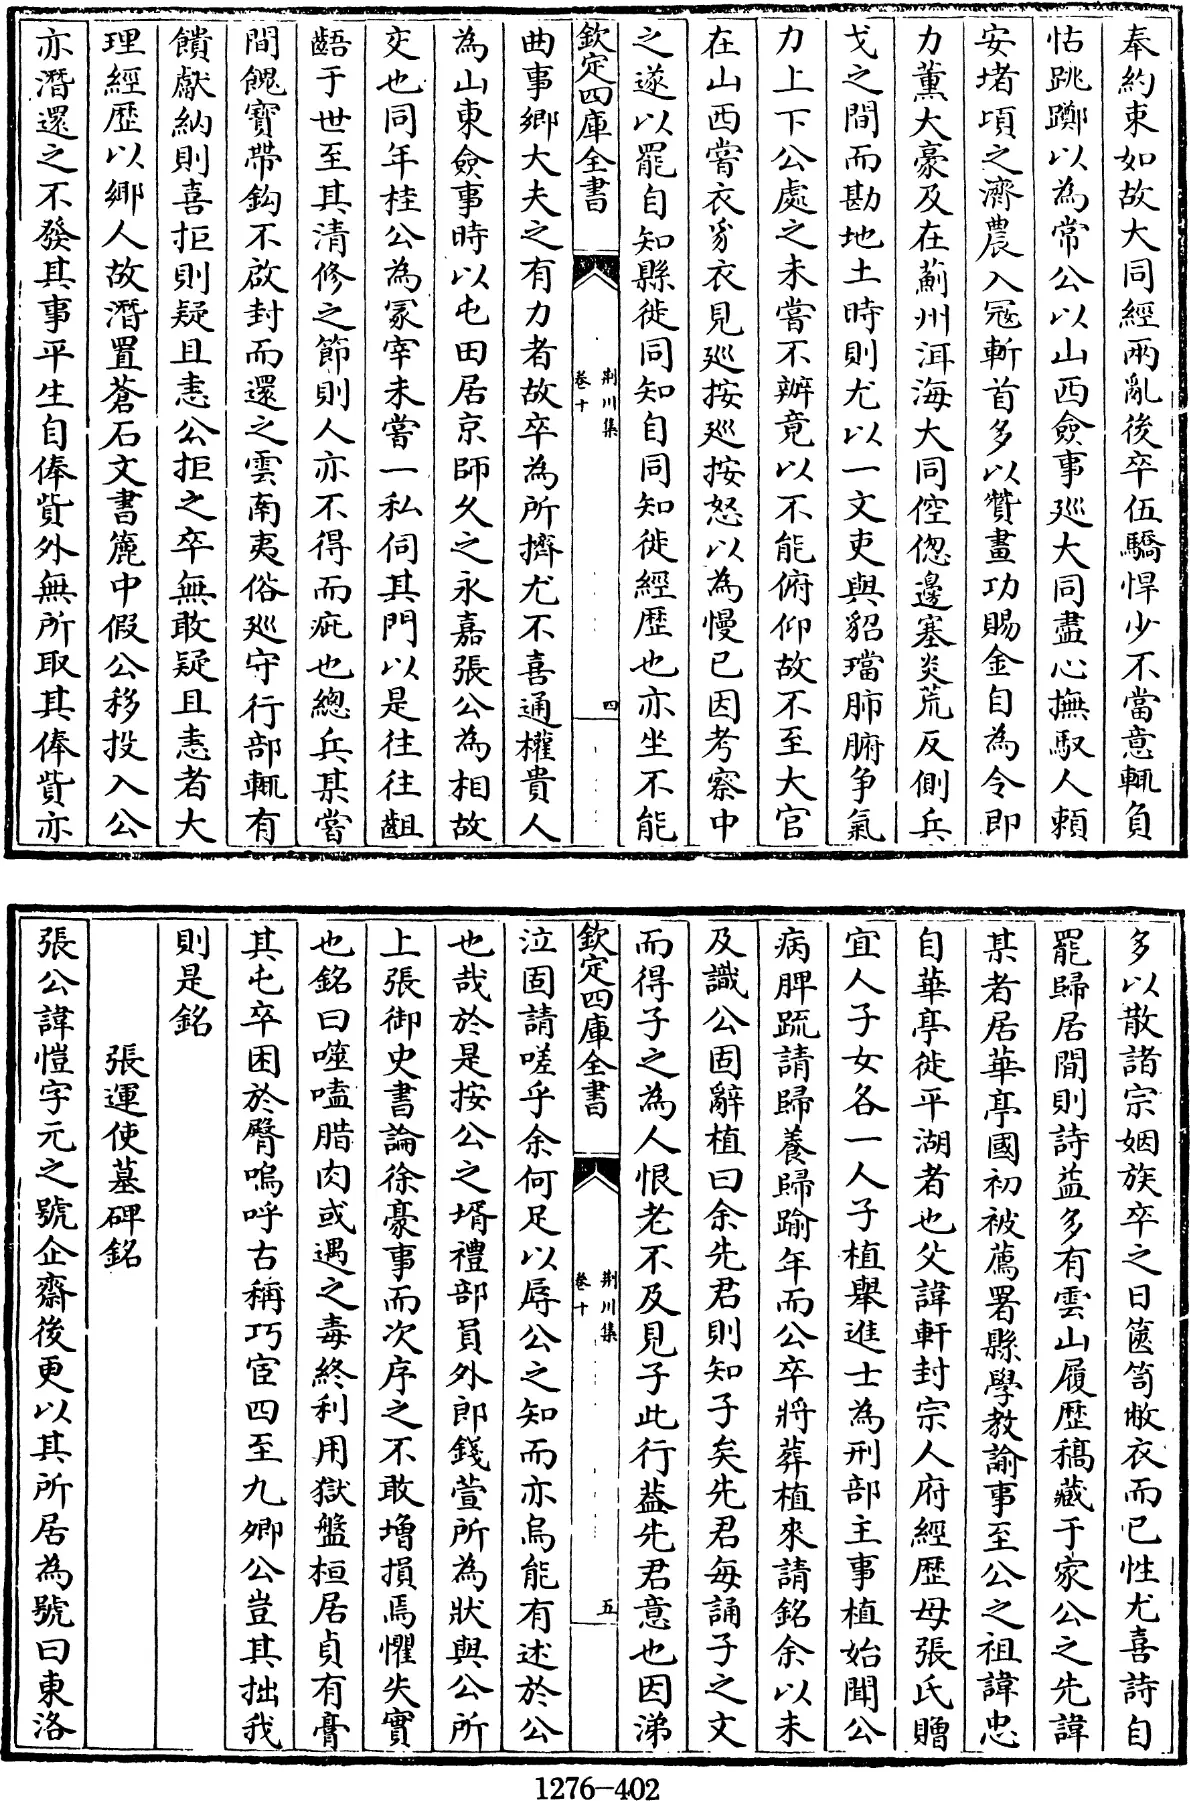 奉約束如故大同經兩亂後卒伍驕悍少不當意輒負
怙跳躑以為常公以山西僉事廵大同盡心撫馭人頼
安堵頃之濟農入冦斬首多以贊畫功賜金自為令即
力薰大豪及在薊州洱海大同倥偬邊塞炎荒反側兵
戈之間而勘地土時則尤以一文吏與貂璫肺腑争氣
力上下公處之未嘗不辦竟以不能俯仰故不至大官
在山西嘗衣豸衣見廵按廵按怒以為慢已因考察中
之遂以罷自知縣徙同知自同知徙經歴也亦坐不能
欽定四庫全書
荆川集
卷十
四
曲事鄉大夫之有力者故卒為所擠尤不喜通權貴人
為山東僉事時以屯田居京師久之永嘉張公為相故
交也同年桂公為冡宰未嘗一私伺其門以是往往齟
齬于世至其清修之節則人亦不得而疵也總兵某嘗
間餽寳帶鈎不啟封而還之雲南夷俗廵守行部輒有
饋獻納則喜拒則疑且恚公拒之卒無敢疑且恚者大
理經歴以鄉人故濳置蒼石文書簏中假公移投入公
亦濳還之不發其事平生自俸貲外無所取其俸貲亦
多以散諸宗姻族卒之日篋笥敝衣而已性尤喜詩自
罷歸居閒則詩益多有雲山履歴稿藏于家公之先諱
某者居華亭國初被薦署縣學教諭事至公之祖諱忠
自華亭徙平湖者也父諱軒封宗人府經歴母張氏贈
宜人子女各一人子植舉進士為刑部主事植始聞公
病脾疏請歸養歸踰年而公卒將葬植來請銘余以未
及識公固辭植曰余先君則知子矣先君每誦子之文
而得子之為人恨老不及見子此行葢先君意也因涕
欽定四庫全書
荆川集
卷十
五
泣固請嗟乎余何足以辱公之知而亦烏能有述於公
也哉於是按公之壻禮部員外郎錢萱所為狀與公所
上張御史書論徐豪事而次序之不敢増損焉懼失實
也銘曰噬嗑腊肉或遇之毒終利用獄盤桓居貞有膏
其屯卒困於臀嗚呼古稱巧宦四至九卿公豈其拙我
則是銘
張運使墓碑銘
張公諱愷字元之號企齋後更以其所居為號曰東洛
1276-402